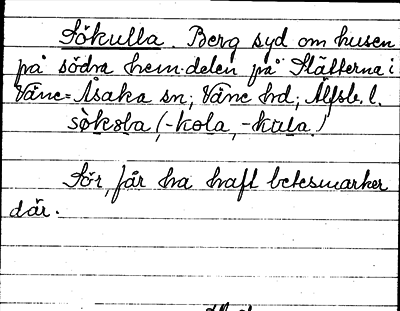 Sökulla. Berg syd om husen
på södra hem.delen på Släfferna i
Väne=Åsaka sn; Väne hd; Älfsb. l.
søkola (-kola, -kula.)
Sör, får ha haft betesmarker
där.